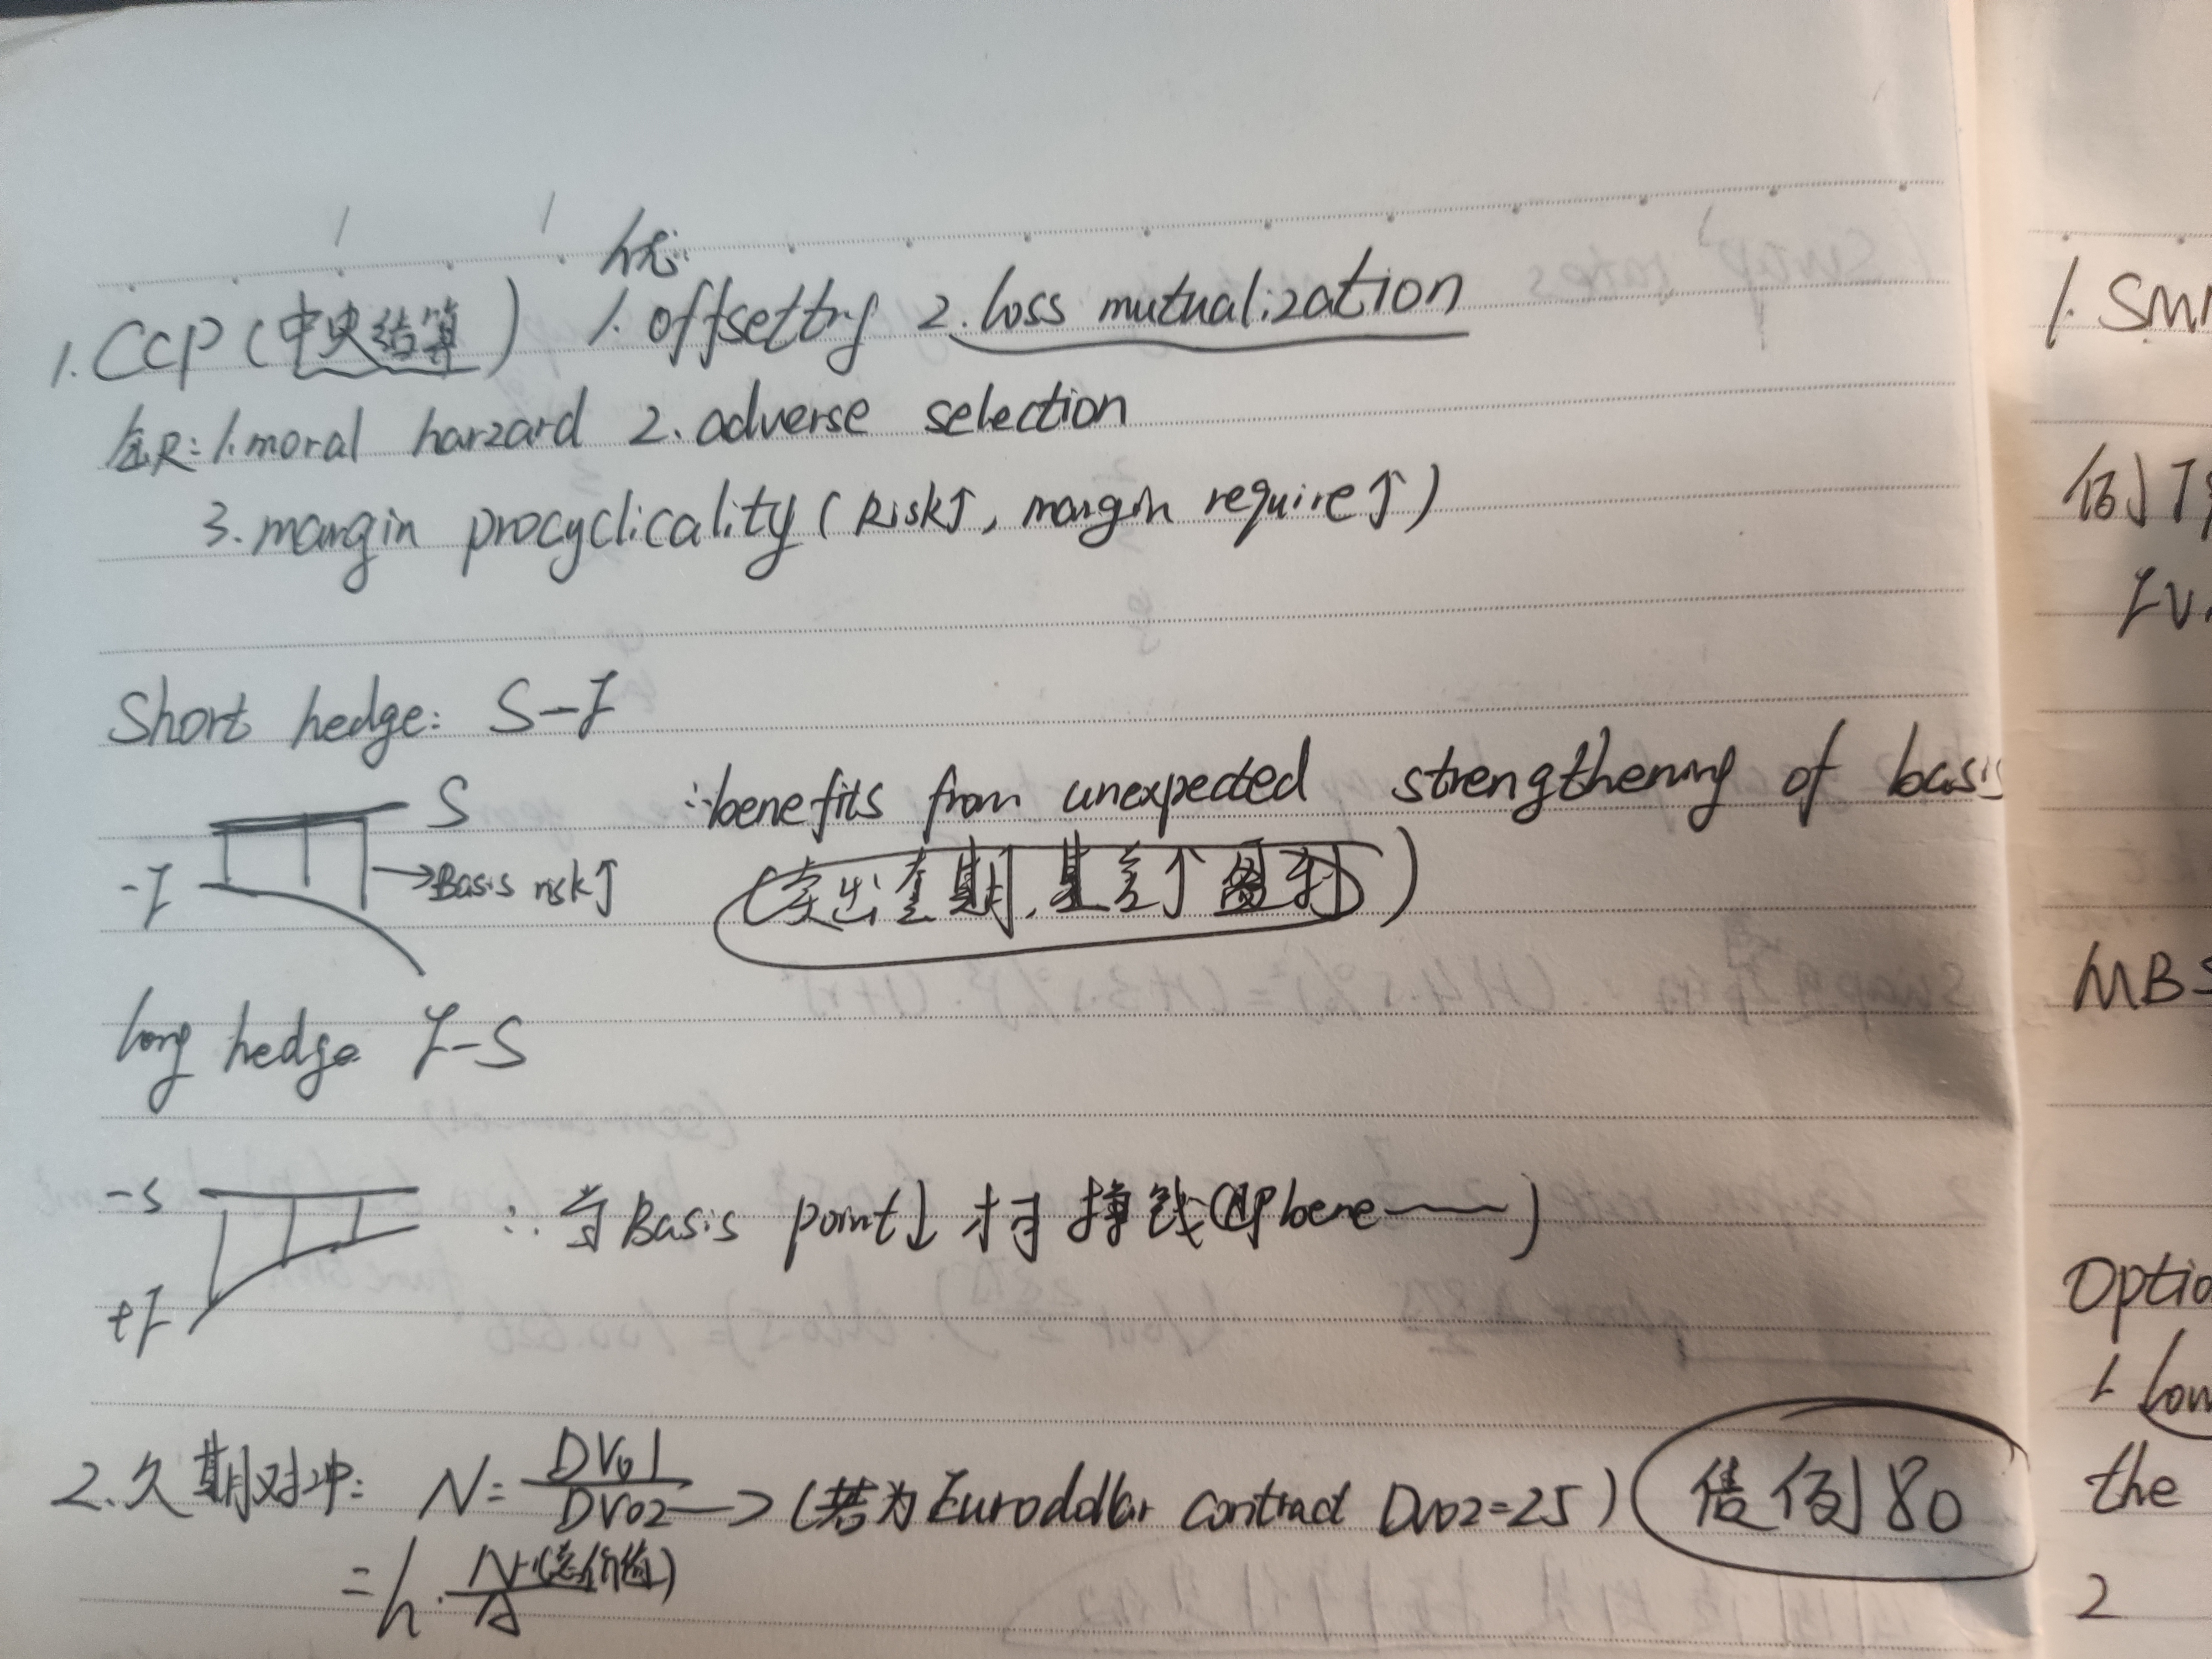 优:
1. CCP (中央结算) 1. offsetting 2. loss mutualization
缺: 1. moral harzard 2. adverse selection
3. margin procyclicality (Risk↑, margin require↑)
Short hedge: S-F
S ∴ benefits from unexpected strengthening of basis
-F →Basis risk↑ (卖出套期, 基差↑ 盈利)
long hedge F-S
-S ∴ 当 Basis point↓ 才挣钱 (bene
+F
2. 久期对冲: N= DV01 / DV02 → (若为 Eurodollar contract DV02=25) 借例 80
=h· N(总价值) / A
1. SM
例
MBS
Optio
1 low
the
2